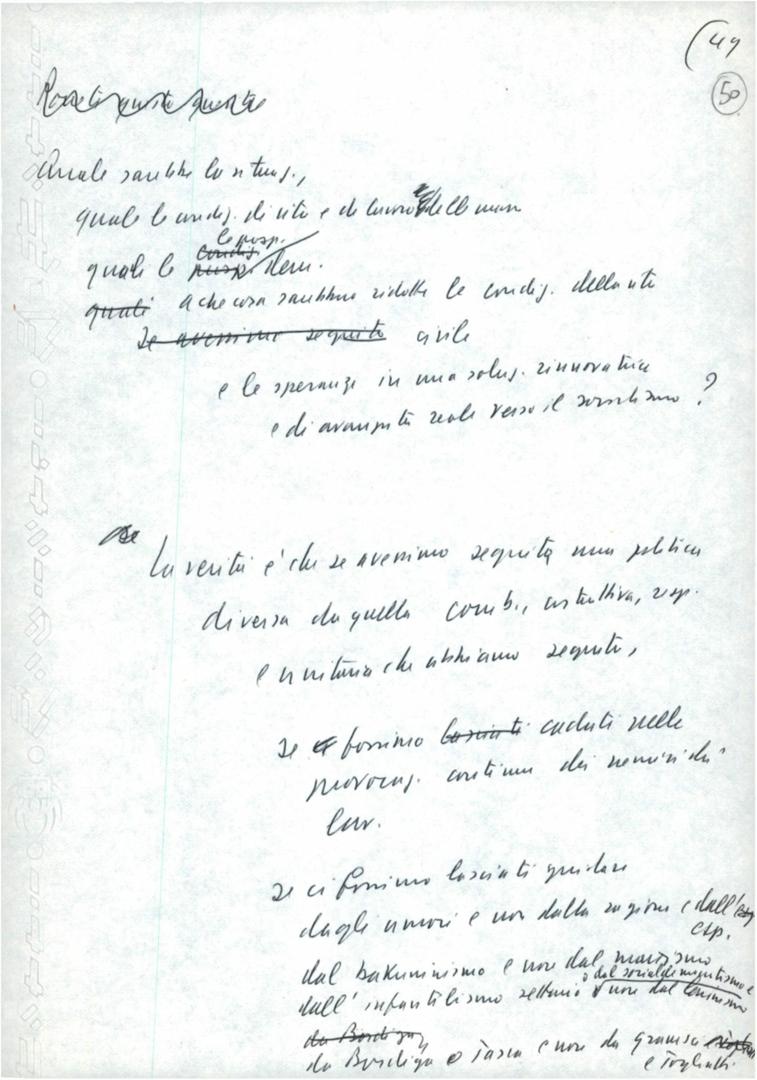 (49
50
Quale sarebbe la situaz.,
quale le condiz. di vita e di lavoro delle masse
le prosp.
quali le condiz. prosp. dem.
quali a che cosa sarebbero ridotte le condiz. della vita
se avessimo seguito civile
e le speranze in una soluz. rinnovatrice
e di avanzata reale verso il socialismo?
La verità è che se avessimo seguito una politica
diversa da quella comb., costruttiva, resp.
e unitaria che abbiamo seguito,
se fossimo lasciati caduti nelle
provocaz. continue dei nemici dei
lav.
se ci fossimo lasciati guidare
dagli umori e non dalla ragione e dall'esp
esp.
dal bakuninismo e non dal marxismo
o dal socialdemocratismo e
dall'infantilismo settario e non dal leninismo
da Bordiga
da Bordiga o Tasca e non da Gramsci
e Togliatti